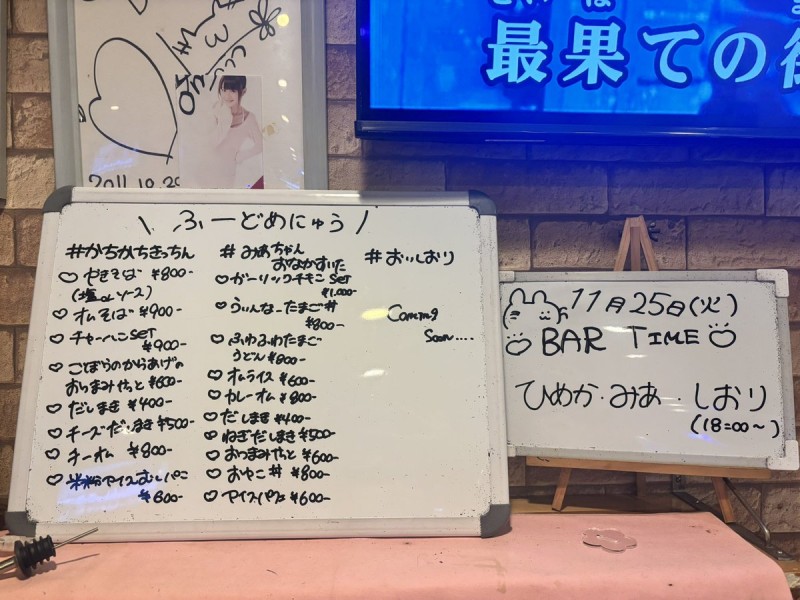 2011.10.20
さいは
最果ての街
\ ふーどめにゅう /
#かちかちきっちん
♡ やきそば ¥800-
(塩orソース)
♡ オムそば ¥900-
♡ チャーハンSET
¥900-
♡ ごぼうのからあげの
おつまみやっと ¥600-
♡ だしまき ¥400-
♡ チーズだしまき ¥500-
♡ チーオム ¥800-
♡ 米粉アイスむしパンこ
¥600-
# みあちゃん
おなかすいた
♡ ガーリックチキンSET
¥1,000-
♡ ういんなーたまご丼
¥800-
♡ ふわふわたまご
うどん ¥800-
♡ オムライス ¥600-
♡ カレーオム ¥800-
♡ だしまき ¥400-
♡ ねぎだしまき ¥500-
♡ おつまみやっと ¥600-
♡ おやこ丼 ¥800-
♡ アイスパフェ ¥600-
# おいしおり
Comming
Soon....
11月25日(火)
♡ BAR TIME ♡
ひめか・みあ・しおり
(18:00~)